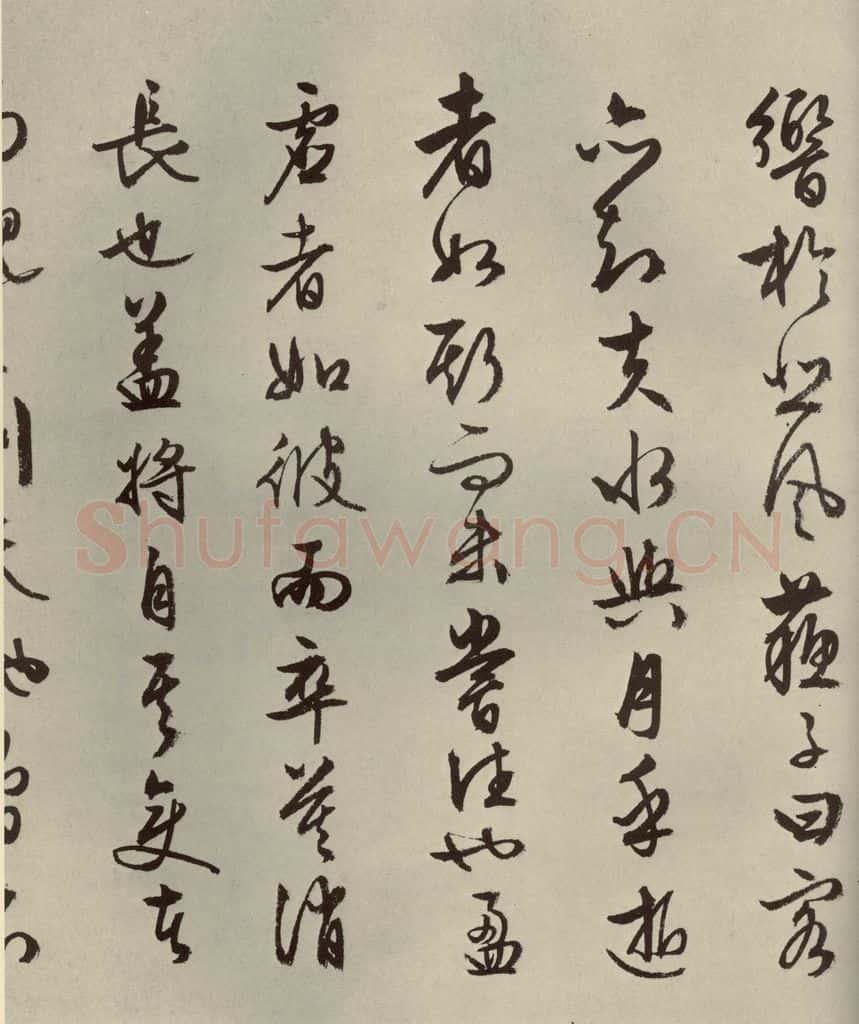 響於悲風蘓子曰客
亦知夫水與月乎逝
者如斯而未嘗往也盈
虛者如彼而卒莫消
長也盖将自其變者
天地曾不
Shufawang.CN